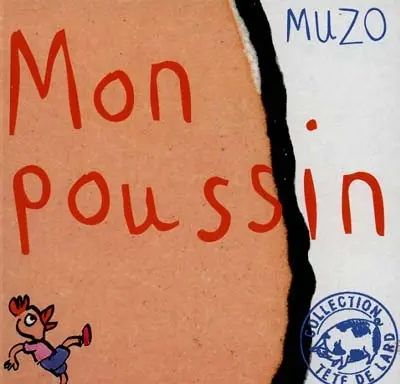 MUZO
Mon
poussin
COLLECTION
TÊTE DE LARD